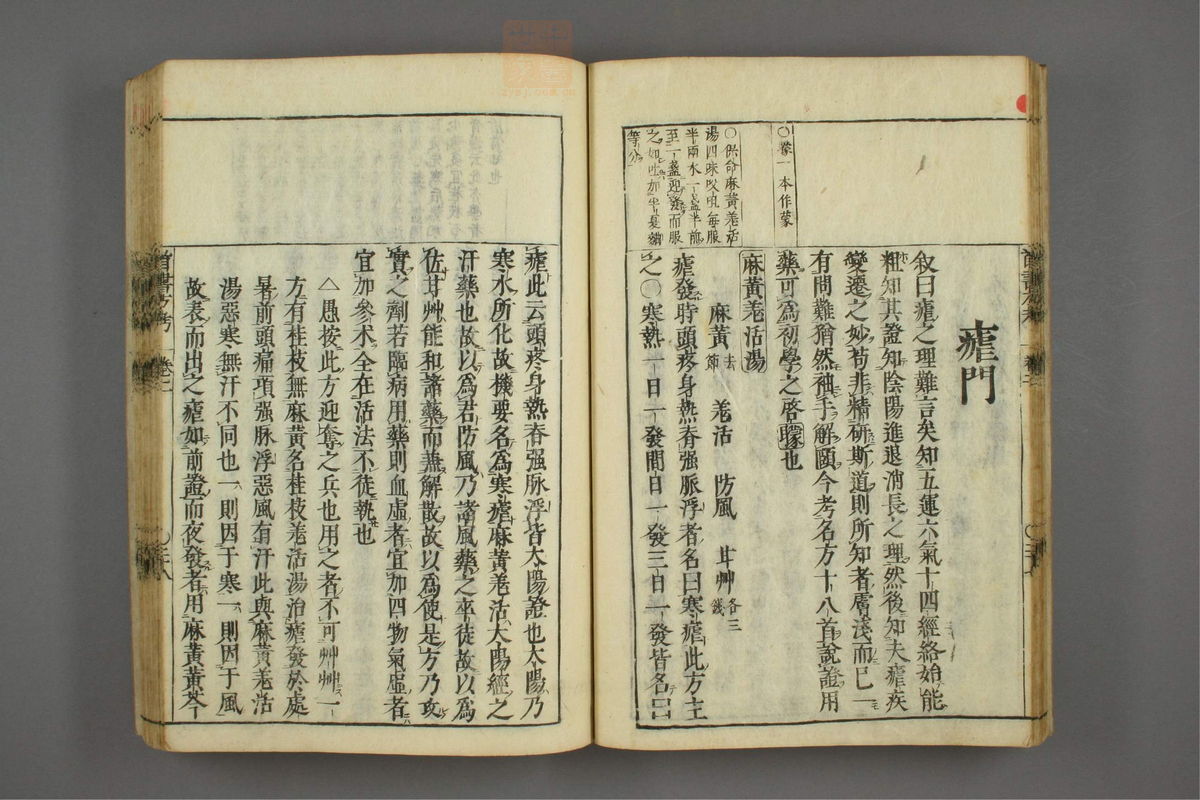 瘧門
叙曰瘧之理難言矣知五運六氣十四經絡始能
粗知其證知陰陽進退消長之理然後知夫瘧疾
變遷之妙苟非精研斯道則所知者膚淺而已一
有問難猶然袖手解頤今考名方十八首說證用
藥可爲初學之啓矇也
麻黃羌活湯
麻黃去節 羌活 防風 甘艸各三錢
瘧發時頭疼身熱脊强脈浮者名曰寒瘧此方主
之〇寒熱一日一發間日一發三日一發皆名曰
〇矇一本作蒙
〇保命麻黃羌活
湯四味㕮咀每服
半兩水一盞半煎
至一盞迎發而服
之如吐加半夏麴
等分
瘧此云頭疼身熱脊强脉浮皆太陽證也太陽乃
寒水所化故機要名爲寒瘧麻黃羌活太陽經之
汗藥也故以爲君防風乃諸風藥之卒徒故以爲
佐甘艸能和諸藥而兼解散故以爲使是方乃攻
實之劑若臨病用藥則血虛者宜加四物氣虛者
宜加參术全在活法不徒執也
△愚按此方迎奪之兵也用之者不可艸艸一
方有桂枝無麻黃名桂枝羌活湯治瘧發於處
暑前頭痛項强脉浮惡風有汗此與麻黃羌活
湯惡寒無汗不同也一則因于寒一則因于風
故表而出之瘧如前證而夜發者用麻黃黃芩